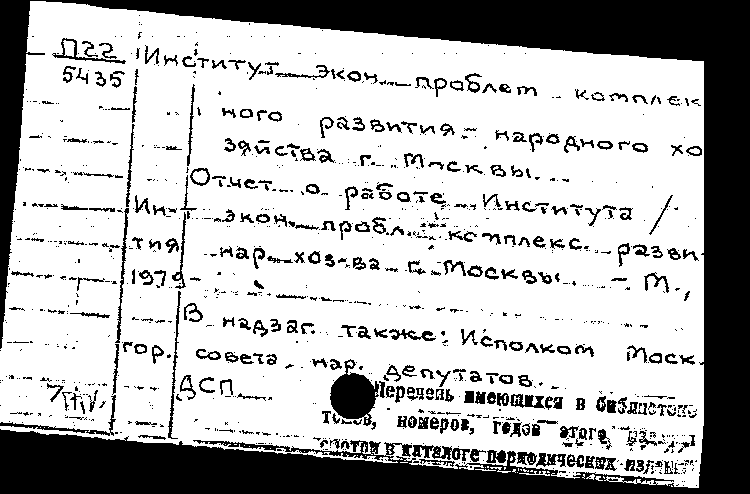 П22
5435
Институт экон. проблем комплек
ного развития народного хо
зяйства г. Москвы.
Отчет о работе Института /
Ин-т экон. пробл. комплекс. разви-
тия нар. хоз-ва г. Москвы. - М.,
1979-
В надзаг. также: Исполком Моск.
гор. совета нар. депутатов.
ДСП
Перечень имеющихся в библиотеке
томов, номеров, годов этого
смотри в каталоге периодических изданий